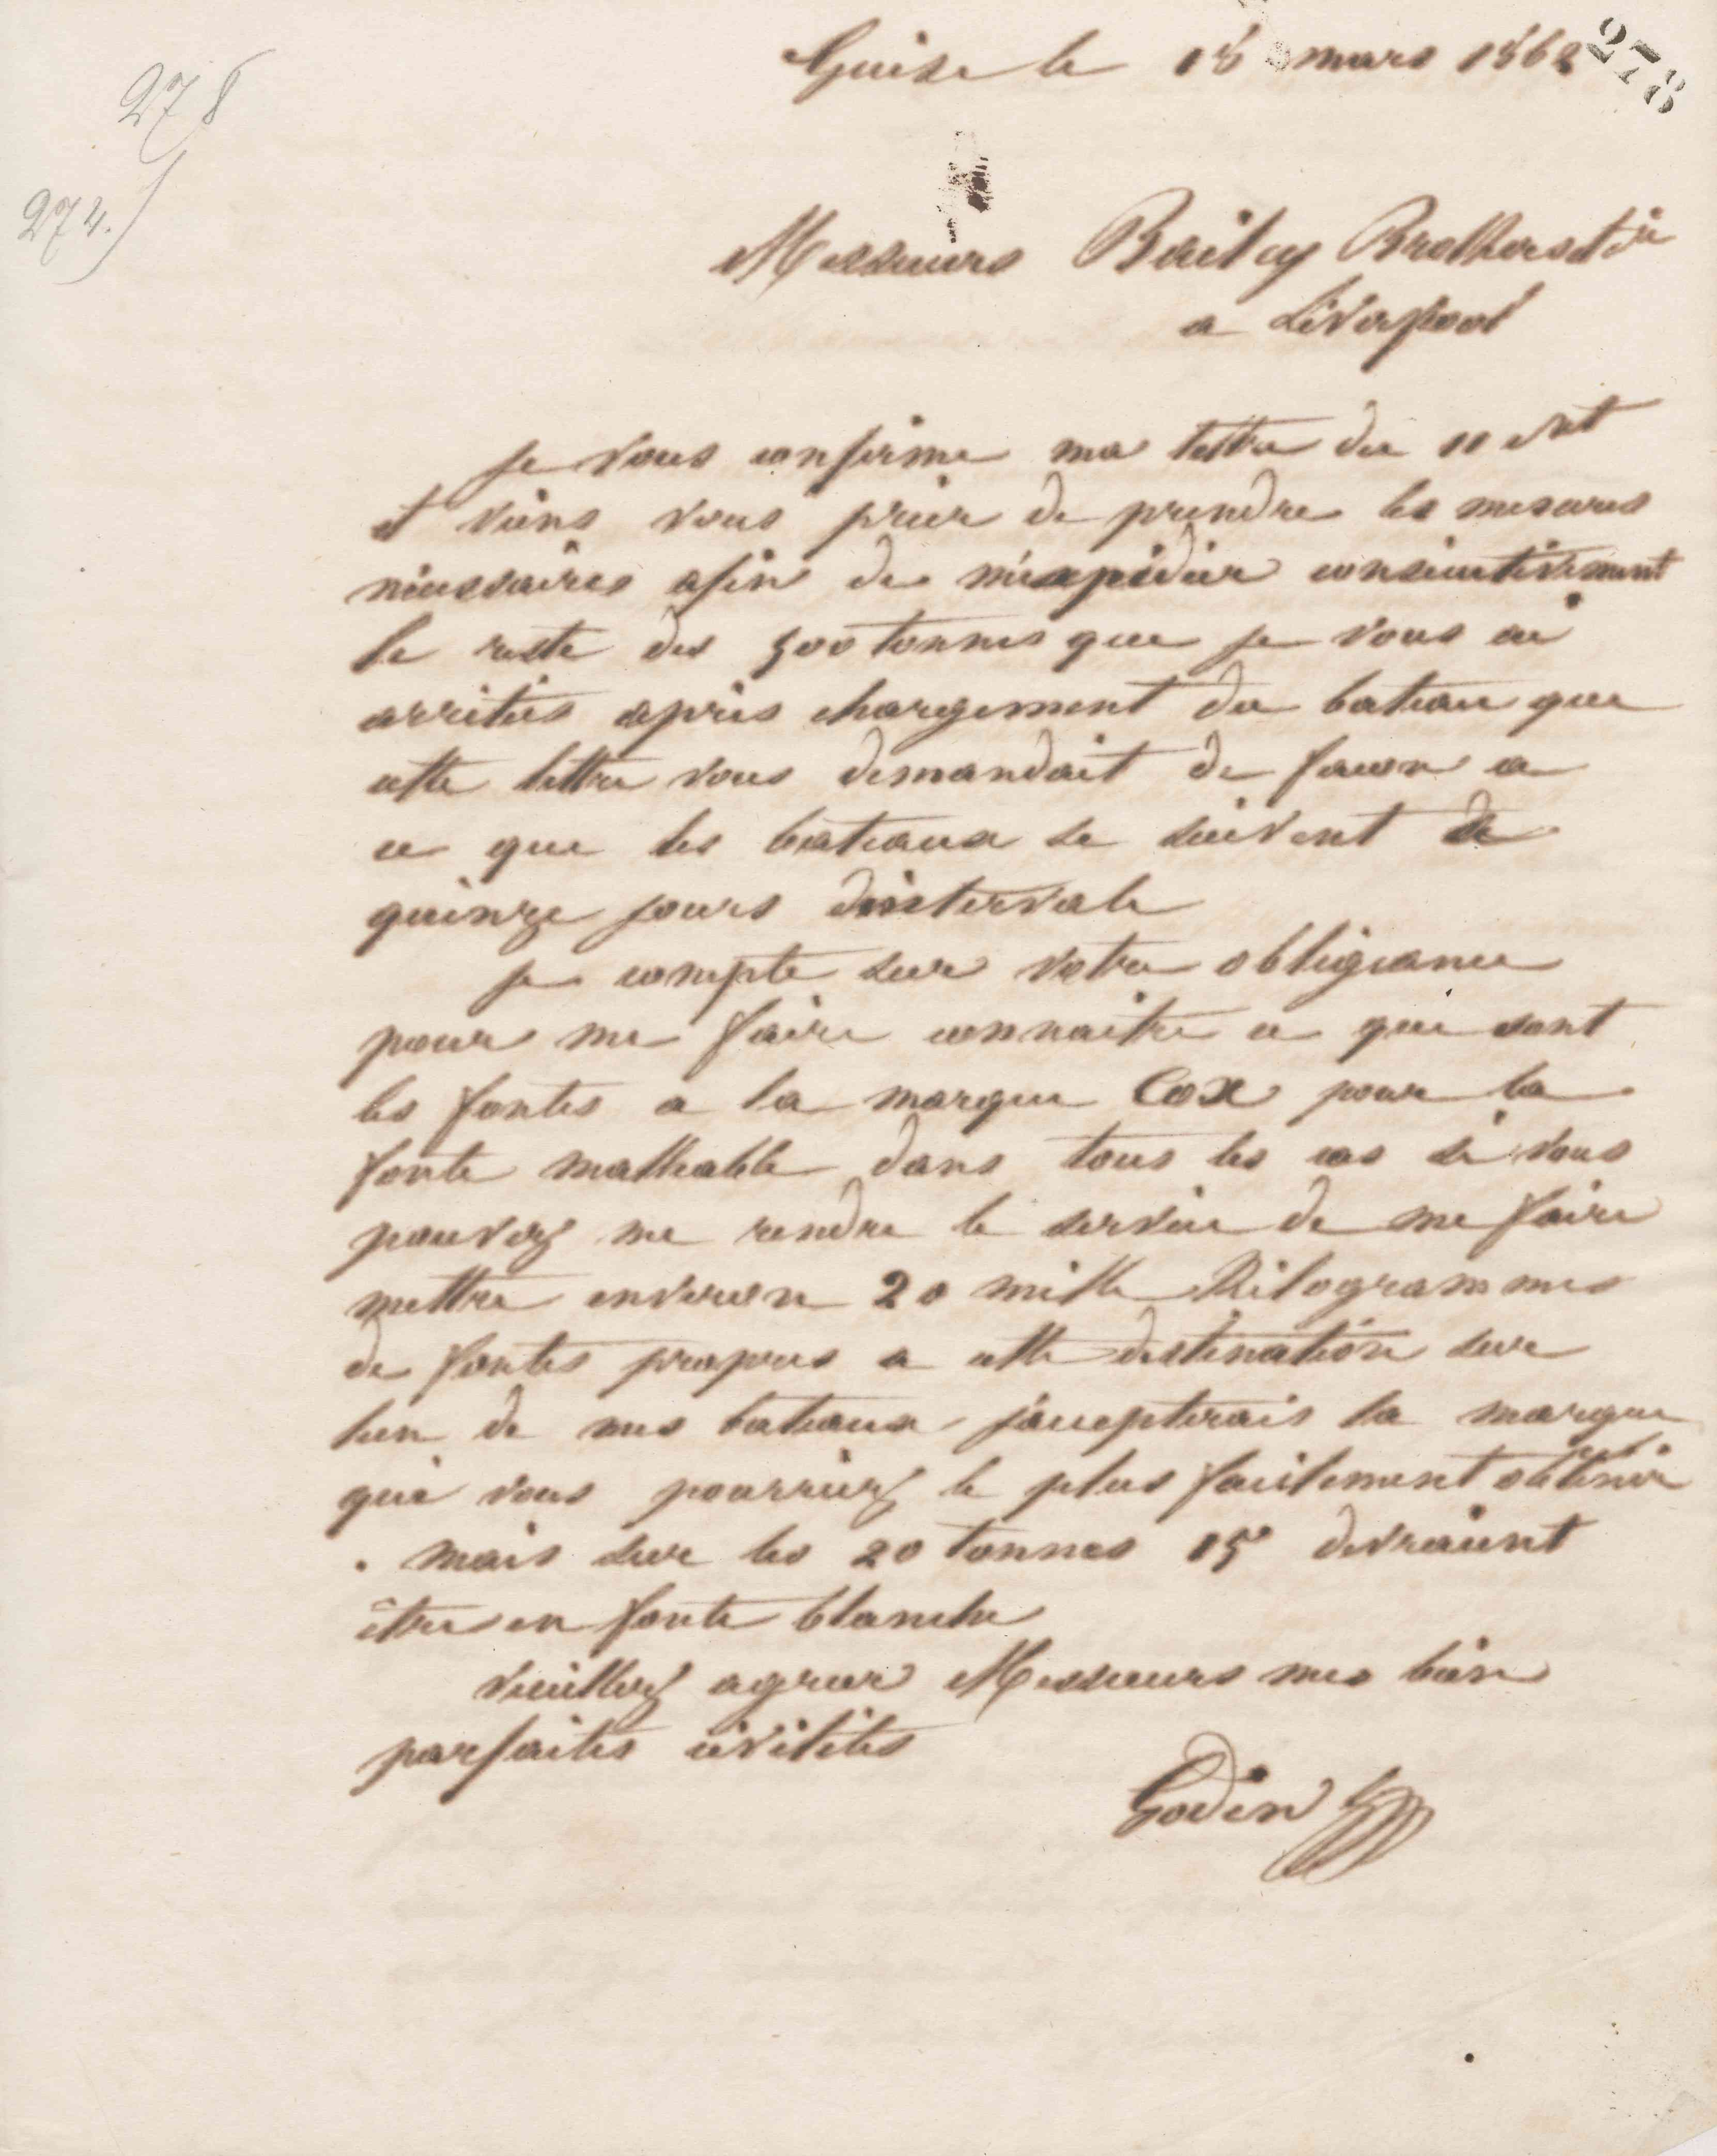 278
274.
278
Guise le 18 mars 1862
Messieurs Bailey Brothers et Cie
a Liverpool
je vous confirme ma lettre du 11 ct
et viens vous prier de prendre les mesures
nécessaires afin de m'expédier consécutivement
le reste des 500 tonnes que je vous ai
arrêtées après chargement du bateau que
cette lettre vous demandait de facon a
ce que les bateaux se suivent de
quinze jours dintervale
je compte sur votre obligeance
pour me faire connaitre ce que sont
les fontes a la marque Cox pour la
fonte malleable dans tous les cas si vous
pouvez me rendre le service de me faire
mettre environ 20 mille Kilogrammes
de fontes propres a cette destination sur
lun de mes bateaux j'accepterais la marque
que vous pourriez le plus facilement obtenir
. mais sur les 20 tonnes 15 devraient
être en fonte blanche
veuillez agreer Messieurs mes bien
parfaites civilités
Godin